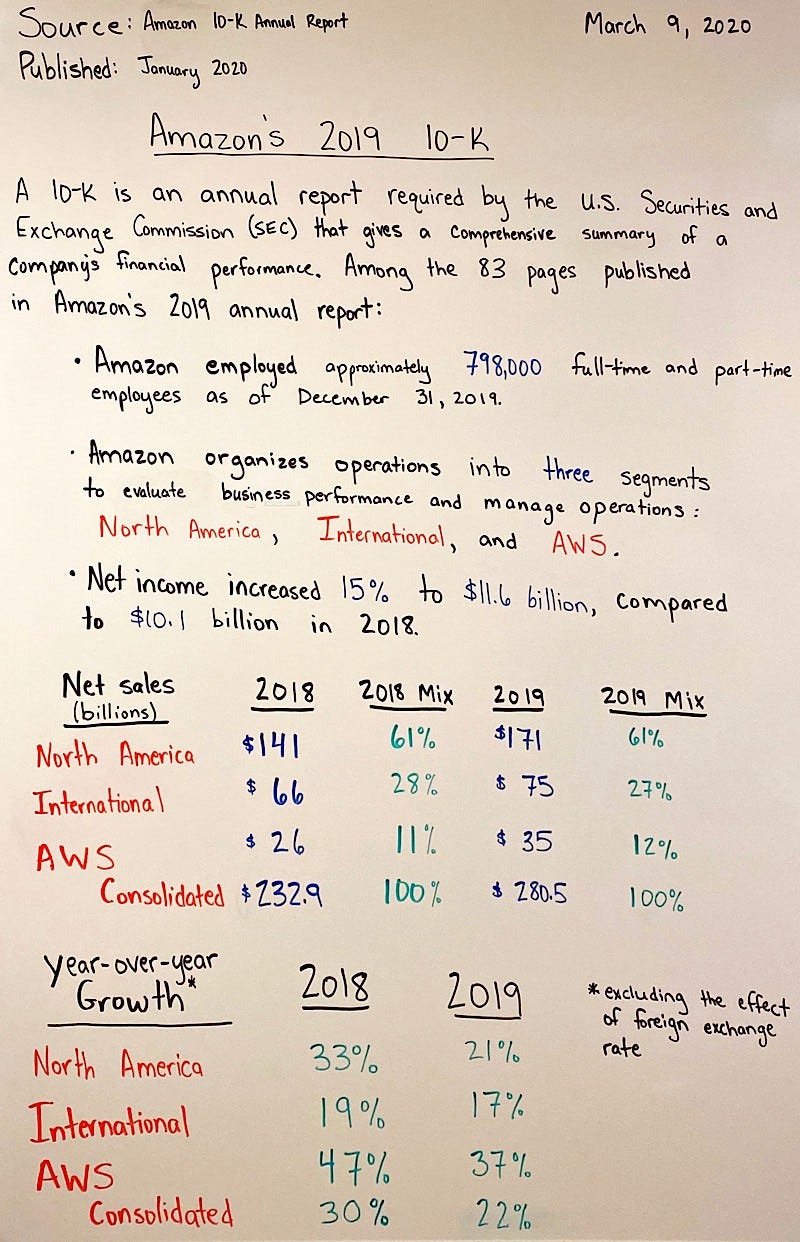 Source: Amazon 10-K Annual Report March 9, 2020
Published: January 2020
Amazon's 2019 10-K
A 10-K is an annual report required by the U.S. Securities and
Exchange Commission (SEC) that gives a comprehensive summary of a
company's financial performance. Among the 83 pages published
in Amazon's 2019 annual report:
• Amazon employed approximately 798,000 full-time and part-time
employees as of December 31, 2019.
• Amazon organizes operations into three segments
to evaluate business performance and manage operations:
North America, International, and AWS.
• Net income increased 15% to $11.6 billion, compared
to $10.1 billion in 2018.
Net sales 2018 2018 Mix 2019 2019 Mix
(billions)
North America $141 61% $171 61%
International $ 66 28% $ 75 27%
AWS $ 26 11% $ 35 12%
Consolidated $232.9 100% $ 280.5 100%
Year-over-year
Growth* 2018 2019
*excluding the effect
of foreign exchange
rate
North America 33% 21%
International 19% 17%
AWS 47% 37%
Consolidated 30% 22%